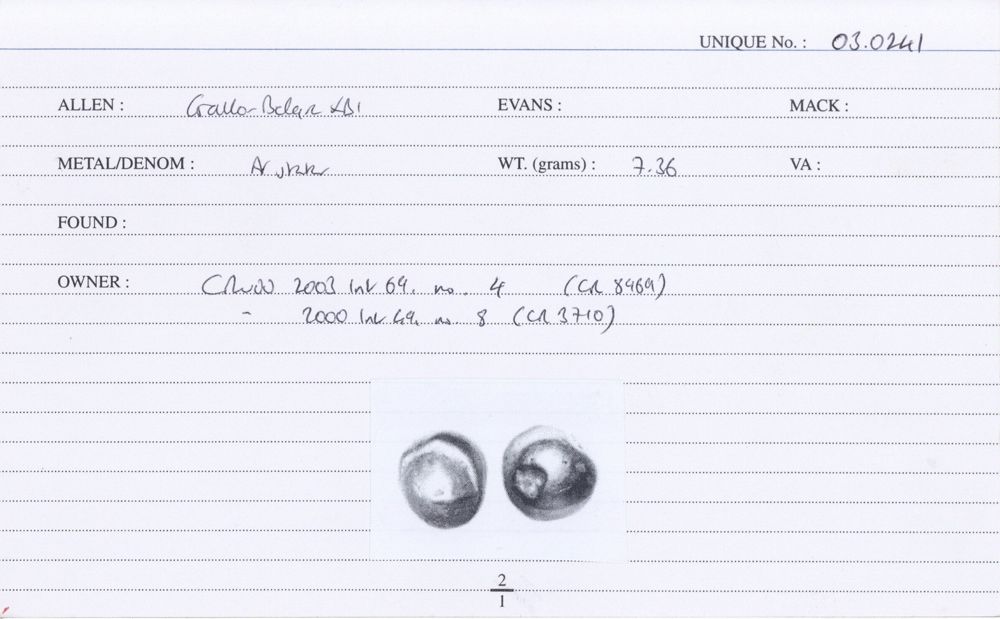 UNIQUE No. : 03.0241
ALLEN : Gallo-Belgic XB1 EVANS : MACK :
METAL/DENOM : AV stater WT. (grams) : 7.36 VA :
FOUND :
OWNER : 2003 list 69. no. 4 (CR 8969)
- 2000 list no. 8 (CR 3710)
2
1